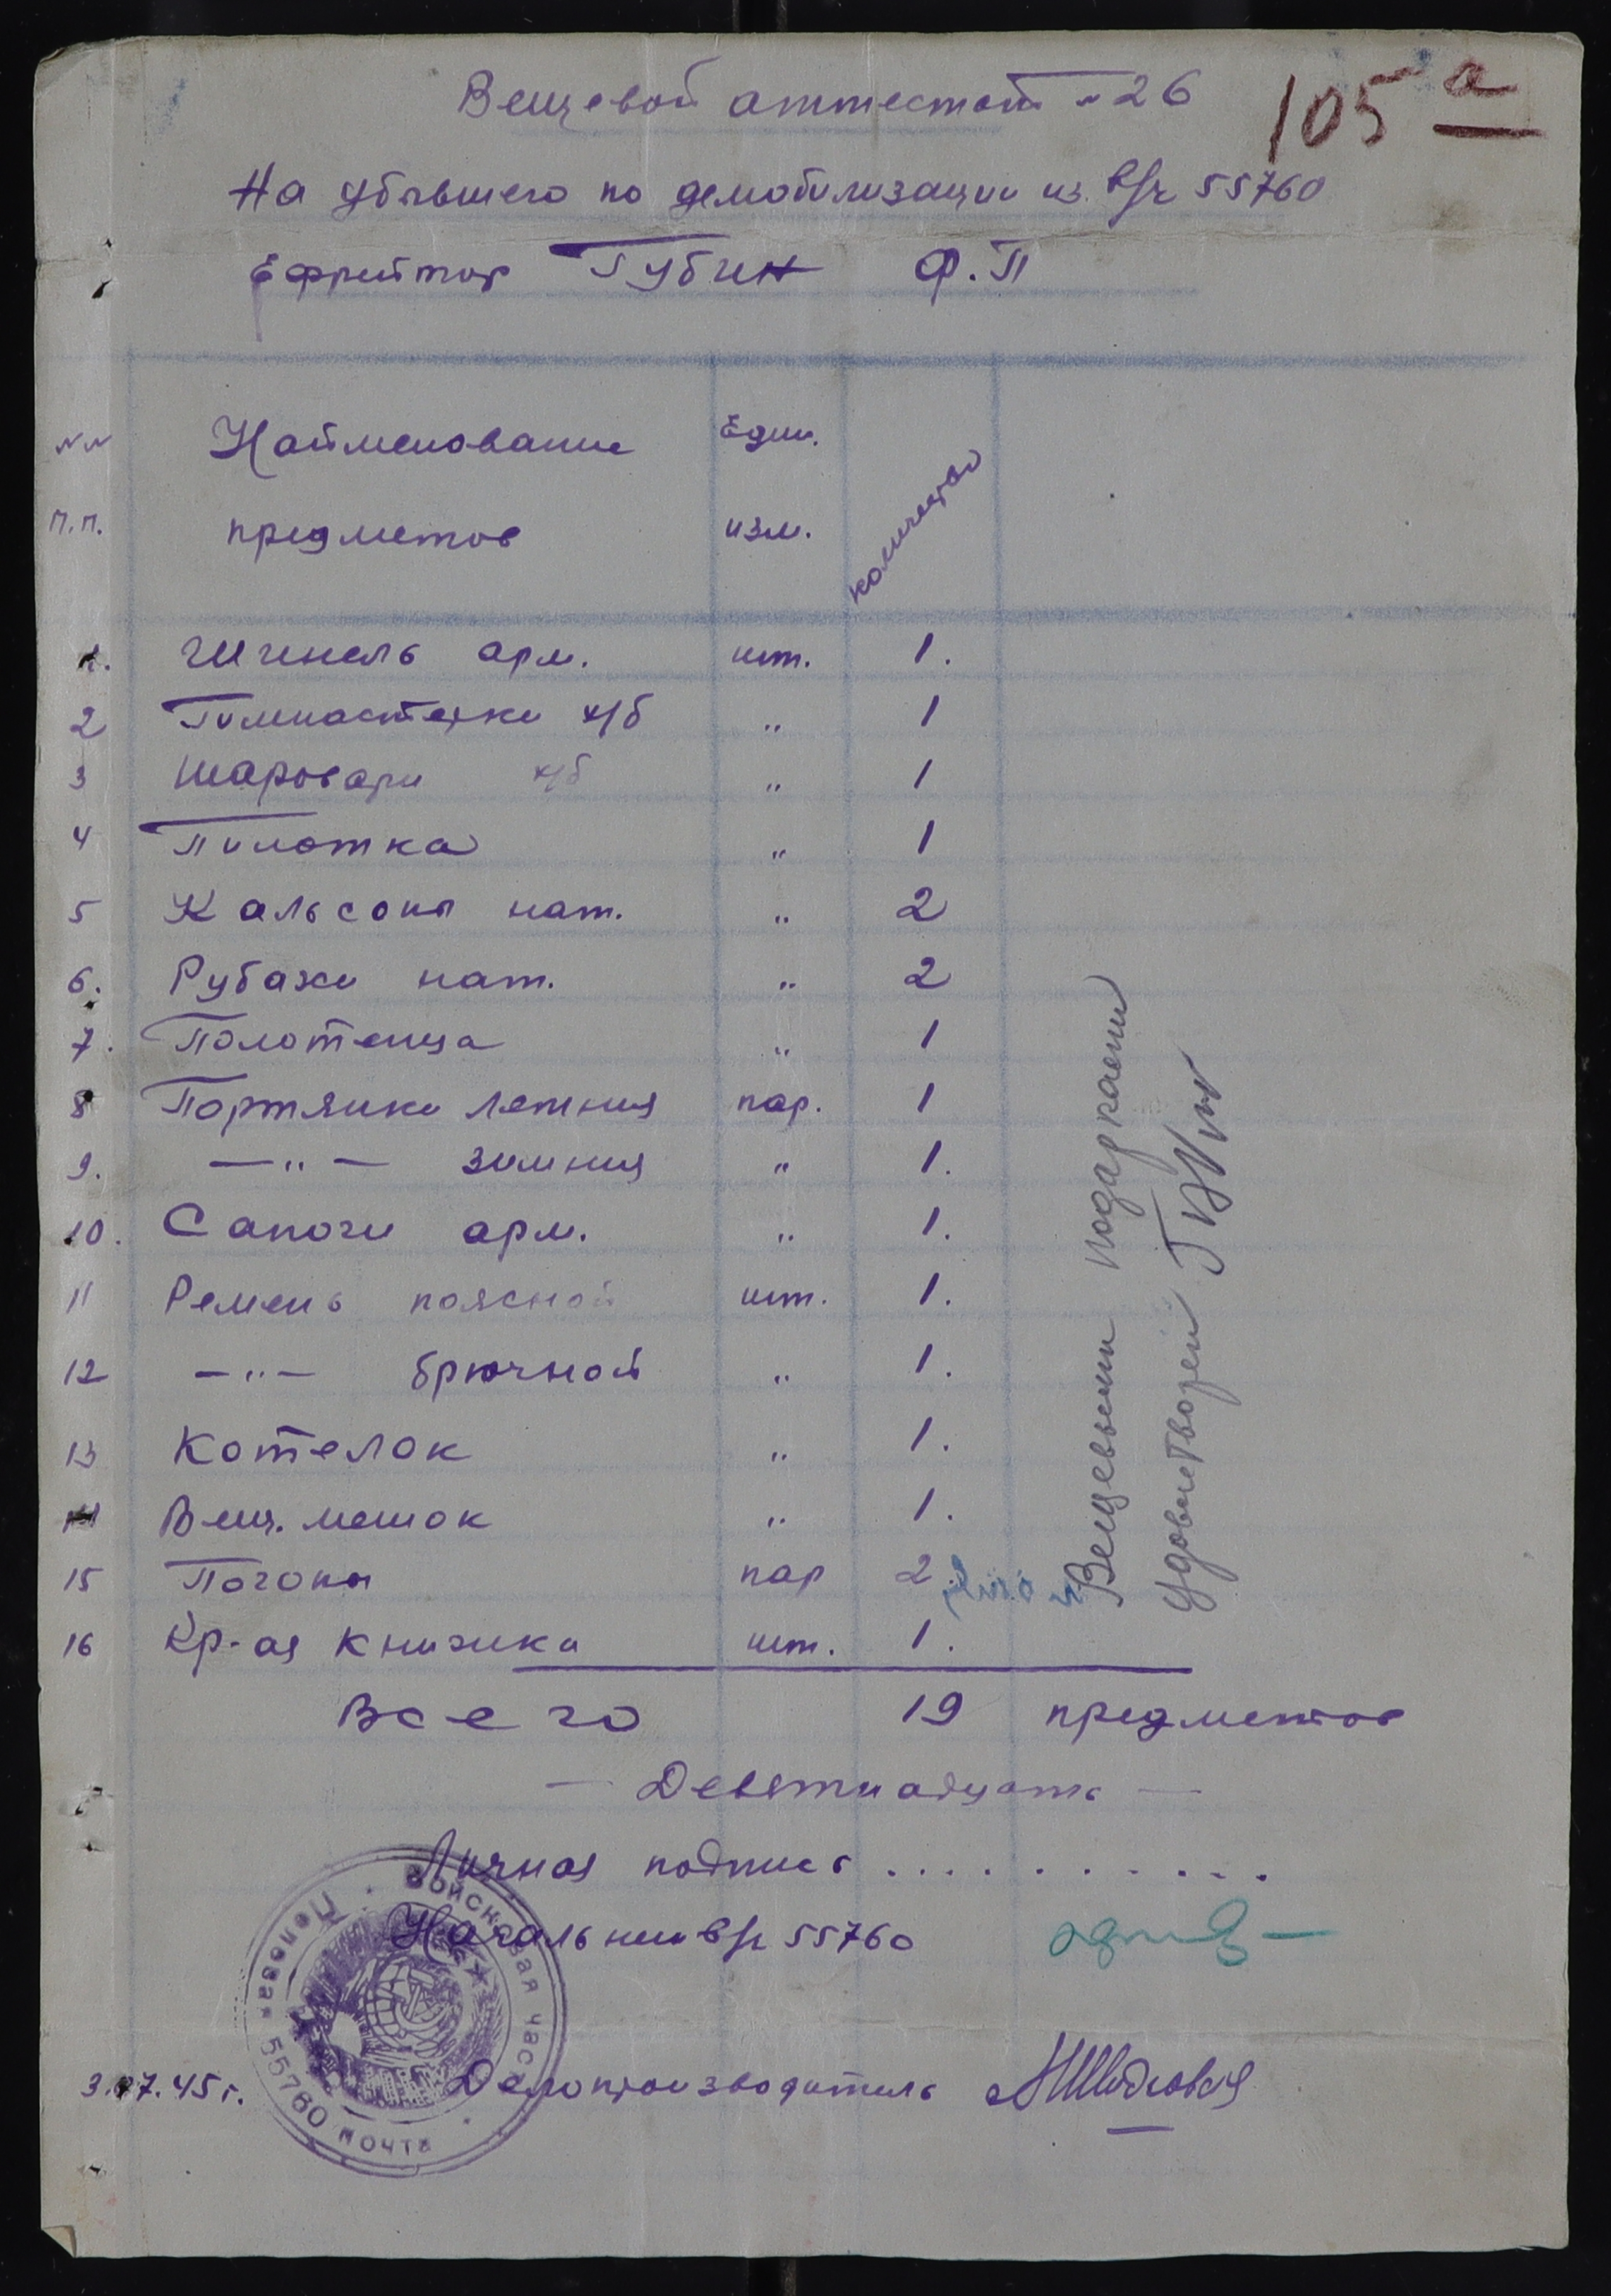 Вещевой аттестат № 26
105 а
На убывшего по демобилизации из в/ч 55760
Ефрейтор Губин Ф.П
№№ п.п. Наименование предметов Един. изм. количество
1. Шинель арм. шт. 1.
2 Гимнастерки х/б " 1
3 Шаровари х/б " 1
4 Пилотка " 1
5 Кальсоны нат. " 2
6. Рубахи нат. " 2
7. Полотенца " 1
8 Портянки летния пар. 1
9. —"— зимния " 1.
10. Сапоги арм. " 1.
11 Ремень поясной шт. 1.
12 —"— брючной " 1.
13 Котелок " 1.
14 Вещ. мешок " 1.
15 Погоны пар 2
16 Кр-ая книжка шт. 1.
Вещевыми подарками
удовлетворен
Всего 19 предметов
— Девятнадцать —
Личная подпись . . . . . . . . . . .
Начальник в/ч 55760
3.07.45г. Делопроизводитель
Войсковая часть
Полевая почта 55760